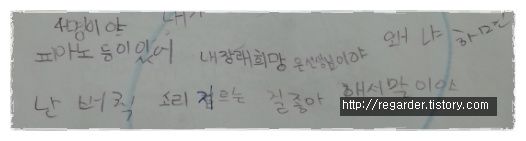 4명이야 내가
피아노 등이있어 내장래희망은선생님이야 왜 냐 하면
난 버럭 소리 지르는 걸 좋아 해서말이야
http://regarder.tistory.com